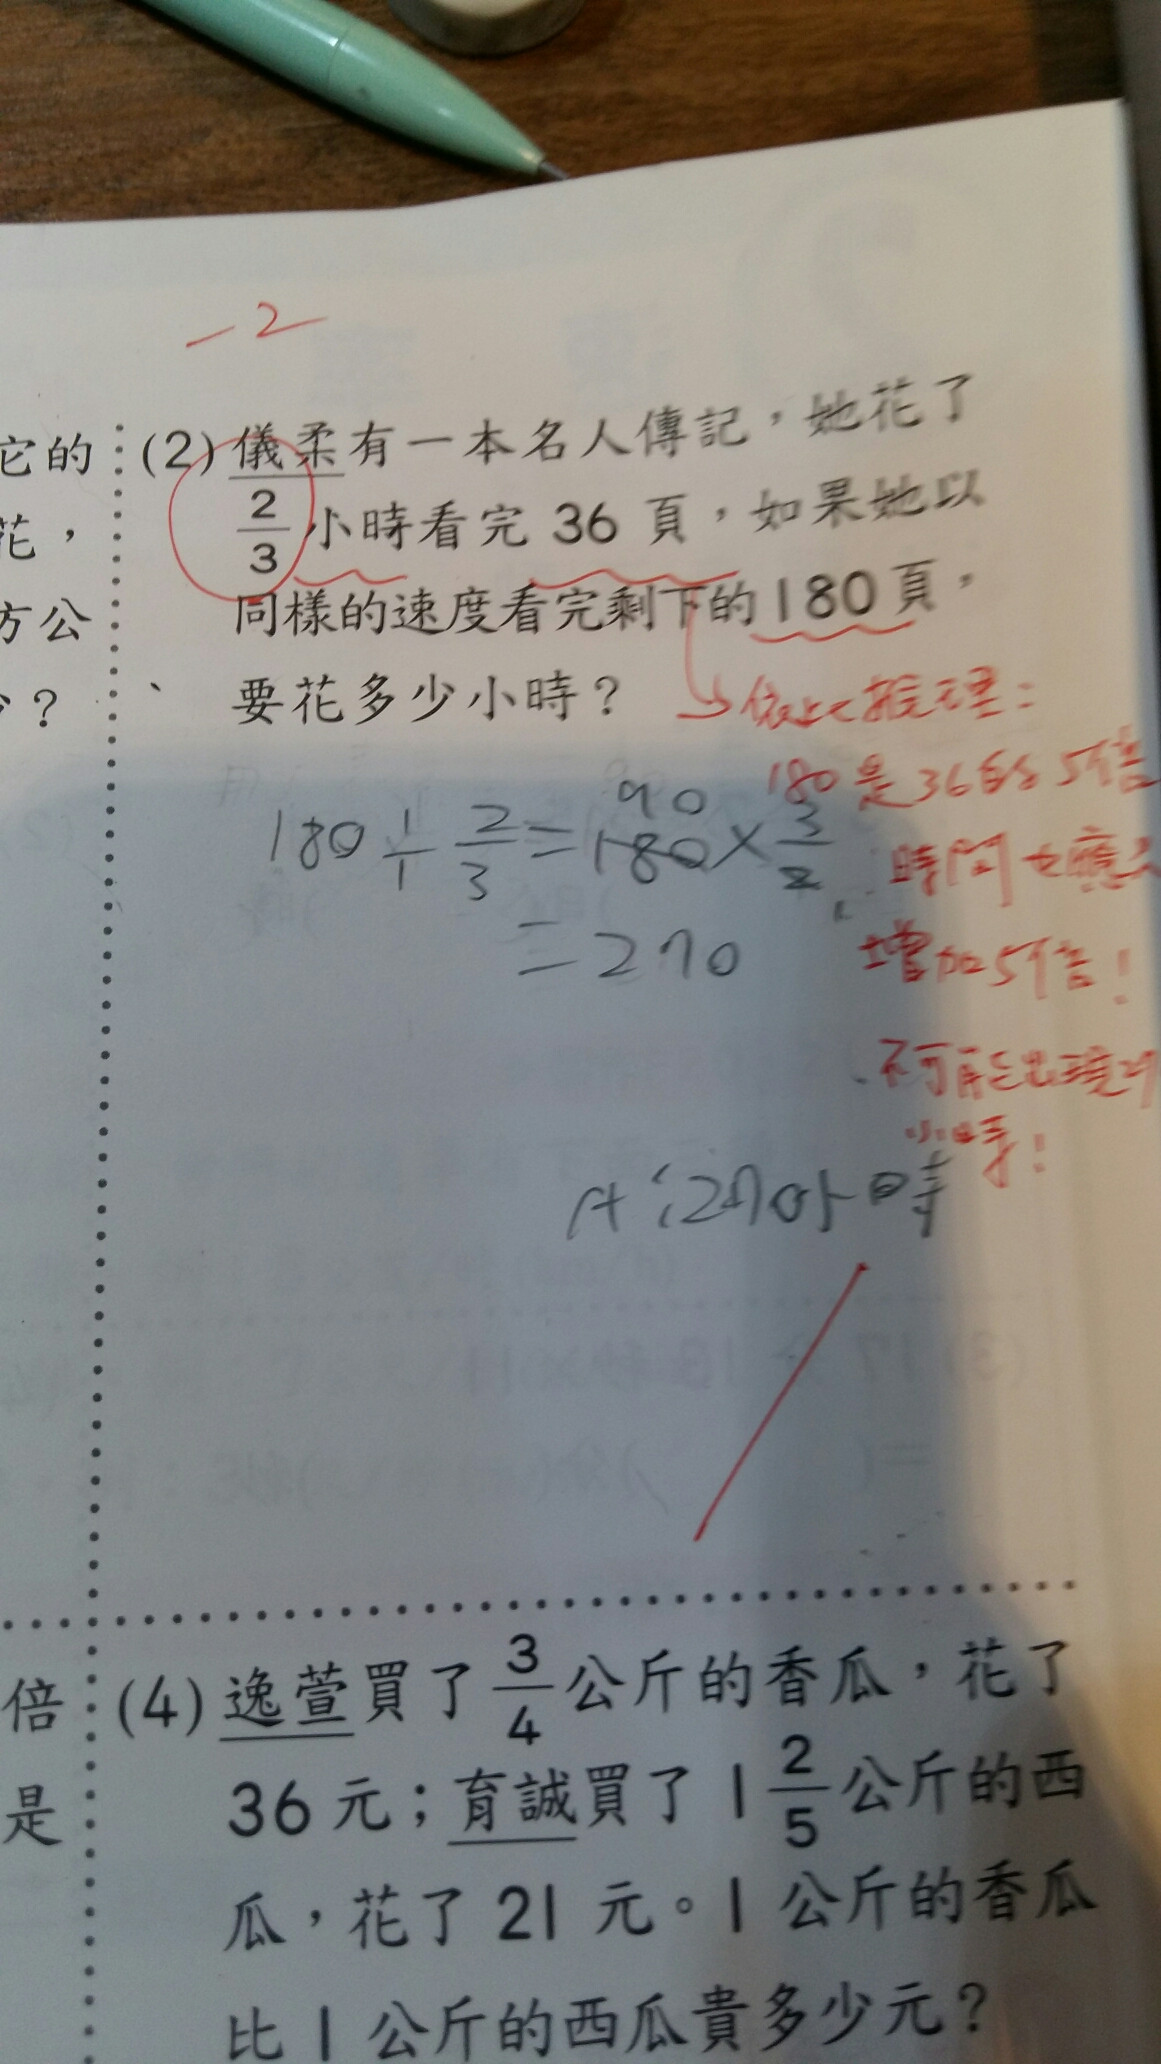 -2
它的
花，
方公
？
(2)儀柔有一本名人傳記，她花了
2/3小時看完36頁，如果她以
同樣的速度看完剩下的180頁，
要花多少小時？
依此推理：
180是36的5倍
時間也應
增加5倍！
不可能出現
小時！
180÷2/3=180×3/2
90
1
=270
A：270小時
倍
是
(4)逸萱買了3/4公斤的香瓜，花了
36元；育誠買了1 2/5公斤的西
瓜，花了21元。1公斤的香瓜
比1公斤的西瓜貴多少元？